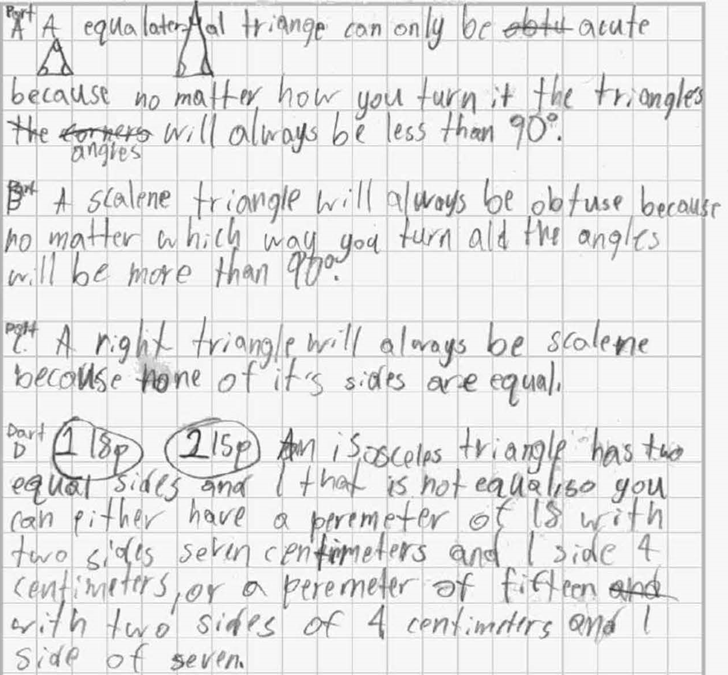 Part A A equalateral triange can only be obtu acute
because no matter how you turn it the triangles
the corners angles will always be less than 90°.
Part B A scalene triangle will always be obtuse because
no matter which way you turn ald the angles
will be more than 90°.
Part C. A right triangle will always be scalene
because none of it's sides are equal.
Part D 1 18p 2 15p An isosceles triangle has two
equal sides and 1 that is not equal, so you
can either have a peremeter of 18 with
two sides seven centimeters and 1 side 4
centimeters, or a peremeter of fifteen and
with two sides of 4 centimeters and 1
side of seven.